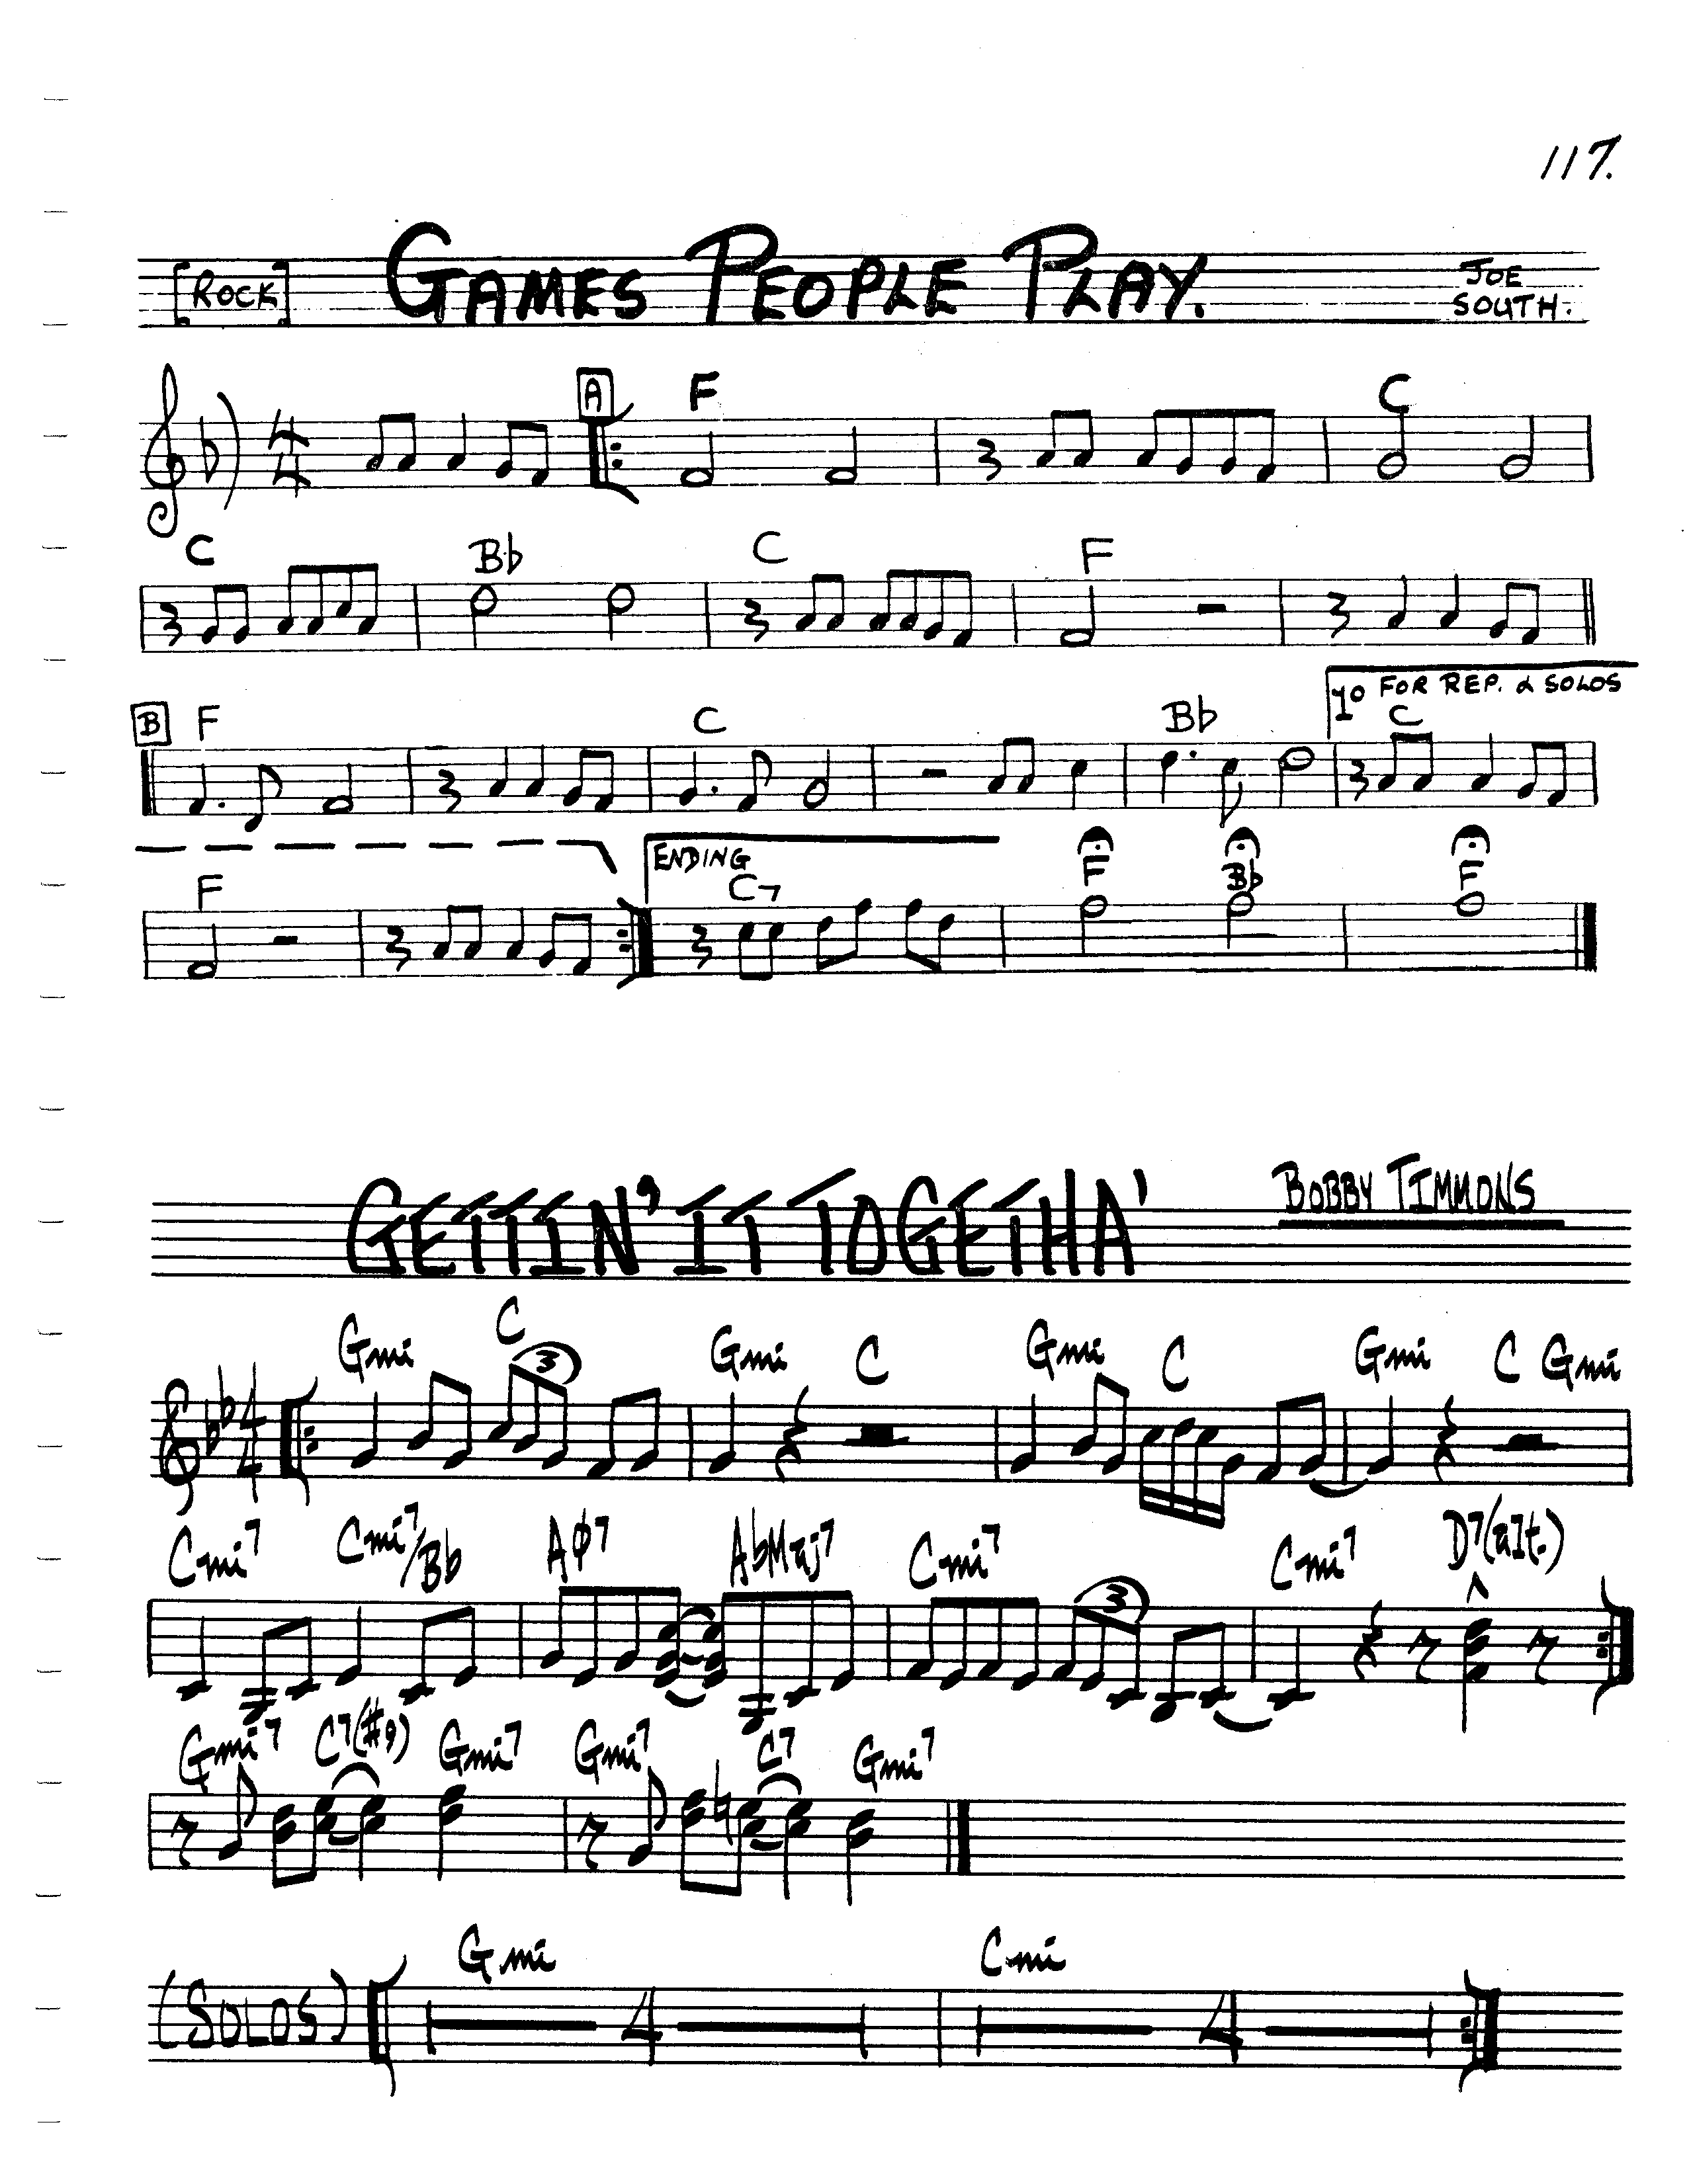 117.
[ROCK] GAMES PEOPLE PLAY. JOE SOUTH.
A F C
4/4
C Bb C F
1º FOR REP. & SOLOS
B F C Bb C
ENDING
F C7 F Bb F
GETTIN' IT TOGETHA' BOBBY TIMMONS
Gmi C Gmi C Gmi C Gmi C Gmi
4/4 3
Cmi7 Cmi7/Bb Aø7 AbMaj7 Cmi7 Cmi7 D7(alt.)
3
Gmi7 C7(#9) Gmi7 Gmi7 C7 Gmi7
Gmi Cmi
(SOLOS) 4 4